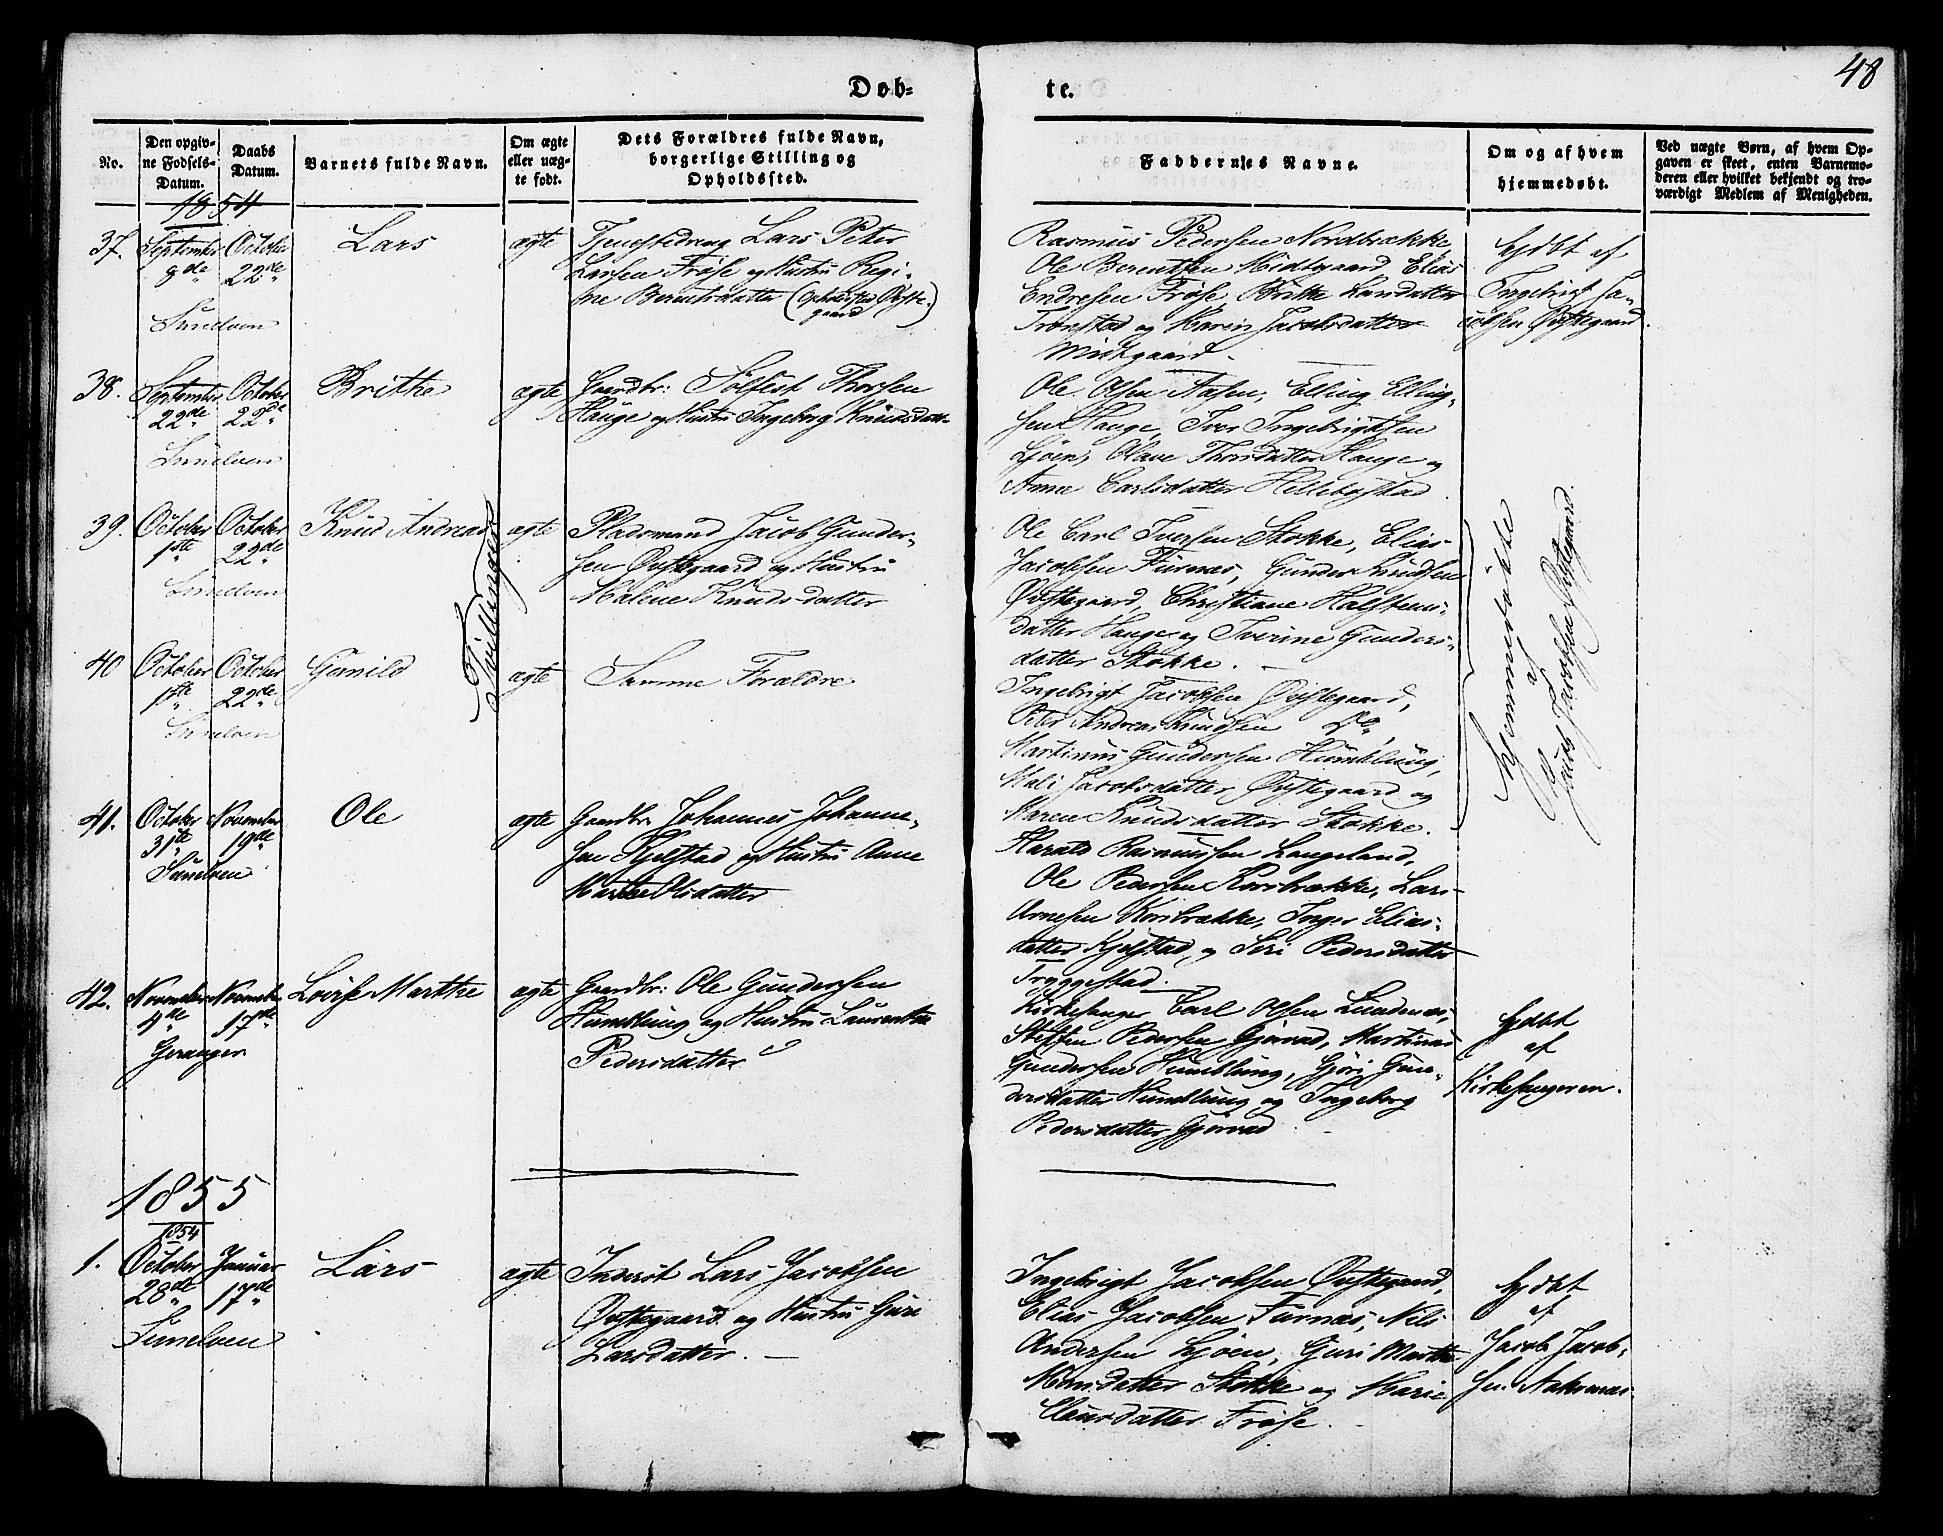 48
Døb- te.
No.
Den opgiv-
ne Fødsels-
Datum.
Daabs
Datum.
Barnets fulde Navn.
Om ægte
eller uæg-
te født.
Dets Forældres fulde Navn,
borgerlige Stilling og
Opholdssted.
Faddernes Navne.
Om og af hvem
hjemmedøbt.
Ved uægte Børn, af hvem Op-
gaven er skeet, enten Barnemo-
deren eller hvilket bekjendt og tro-
værdigt Medlem af Menigheden.
1854
37. September 8de October 22de
Sunelven
Lars
ægte
Tjenestedreng Lars Peter
Larsen Frøse og Hustru Regi-
ne Berentsdatter (Opholdsted Øvste-
gaard)
Rasmus Pedersen Nordbrække,
Ole Berentsen Midtgaard, Elias
Endresen Frøse, Brithe Larsdatter
Tronstad og Karen Jacobsdatter
Midtgaard.
hjdbt af
Ingebrigt Ja-
cobsen Øvstegaard.
38. September 22de October 22de
Sunelven
Brithe
ægte
Gaardbr: Sølfest Thorsen
Hauge og Hustru Ingeborg Knudsdatt-
Ole Olsen Aasen, Elling Elling-
sen Hauge, Iver Ingebrigtsen
Ljøen, Olave Thorsdatter Hauge og
Anne Carlsdatter Hellebostad.
39. October 1ste October 22de
Sunelven
Knud Andreas
Tvillinger
ægte
Pladsmand Jacob Gunder-
sen Øvstegaard og Hustru
Malene Knudsdatter
Ole Carl Iversen Stokke, Elias
Jacobsen Furnæs, Gunder Knudsen
Øvstegaard, Christiane Halsteins-
datter Hauge og Iverine Gunders-
datter Stokke.
hjemmedøbte
af
Jacob Jacobsen Øvstegaard.
40 October 1ste October 22de
Sunelven
Gunild
ægte
Samme Forældre
Ingebrigt Jacobsen Øvstegaard,
Peter Andreas Knudsen do,
Martinus Gundersen Humlung,
Mali Jacobsdatter Øvstegaard og
Maren Knudsdatter Stokke.
41. October 31te November 19de
Sunelven
Ole
ægte
Gaardbr. Johannes Johanne-
sen Kjelstad og Hustru Anne
Marthe Olsdatter
Harald Rasmussen Langeland,
Ole Pedersen Korsbrække, Lars
Arnesen Korsbrække, Inger Elias-
datter Kjelstad, og Siri Pedersdatter
Tryggestad.
42. November 4de November 17de
Geranger
Lovise Marthe
ægte
Gaardbr: Ole Gundersen
Humlung og Hustru Laurentse
Pedersdatter
Kirkesanger Carl Olsen Lundenæs,
Steffen Pedersen Gjørvad, Martinus
Gundersen Humblung, Gjøri Gun-
dersdatter Humblung og Ingeborg
Pedersdatter Gjørvad.
hjdbt
af
Kirkesangeren.
1855
1854
1. October 28de Januar 17de
Sunelven
Lars
ægte
Inderst Lars Jacobsen
Øvstegaard og Hustru Guri
Larsdatter.
Ingebrigt Jacobsen Øvstegaard,
Elias Jacobsen Furnæs, Nils
Andersen Ljøen, Guri Marthe
Monsdatter Stokke og Marie
Clausdatter Frøse.
hjdbt
af
Jacob Jacob-
sen Aaknæs.